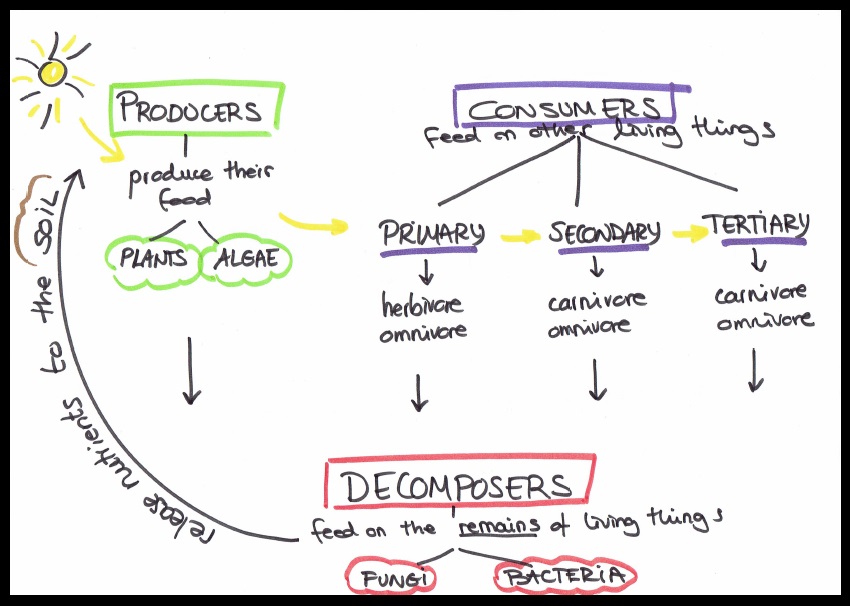 PRODUCERS
produce their
food
PLANTS
ALGAE
CONSUMERS
feed on other living things
PRIMARY
SECONDARY
TERTIARY
herbivore
omnivore
carnivore
omnivore
carnivore
omnivore
DECOMPOSERS
feed on the remains of living things
FUNGI
BACTERIA
release nutrients to the soil